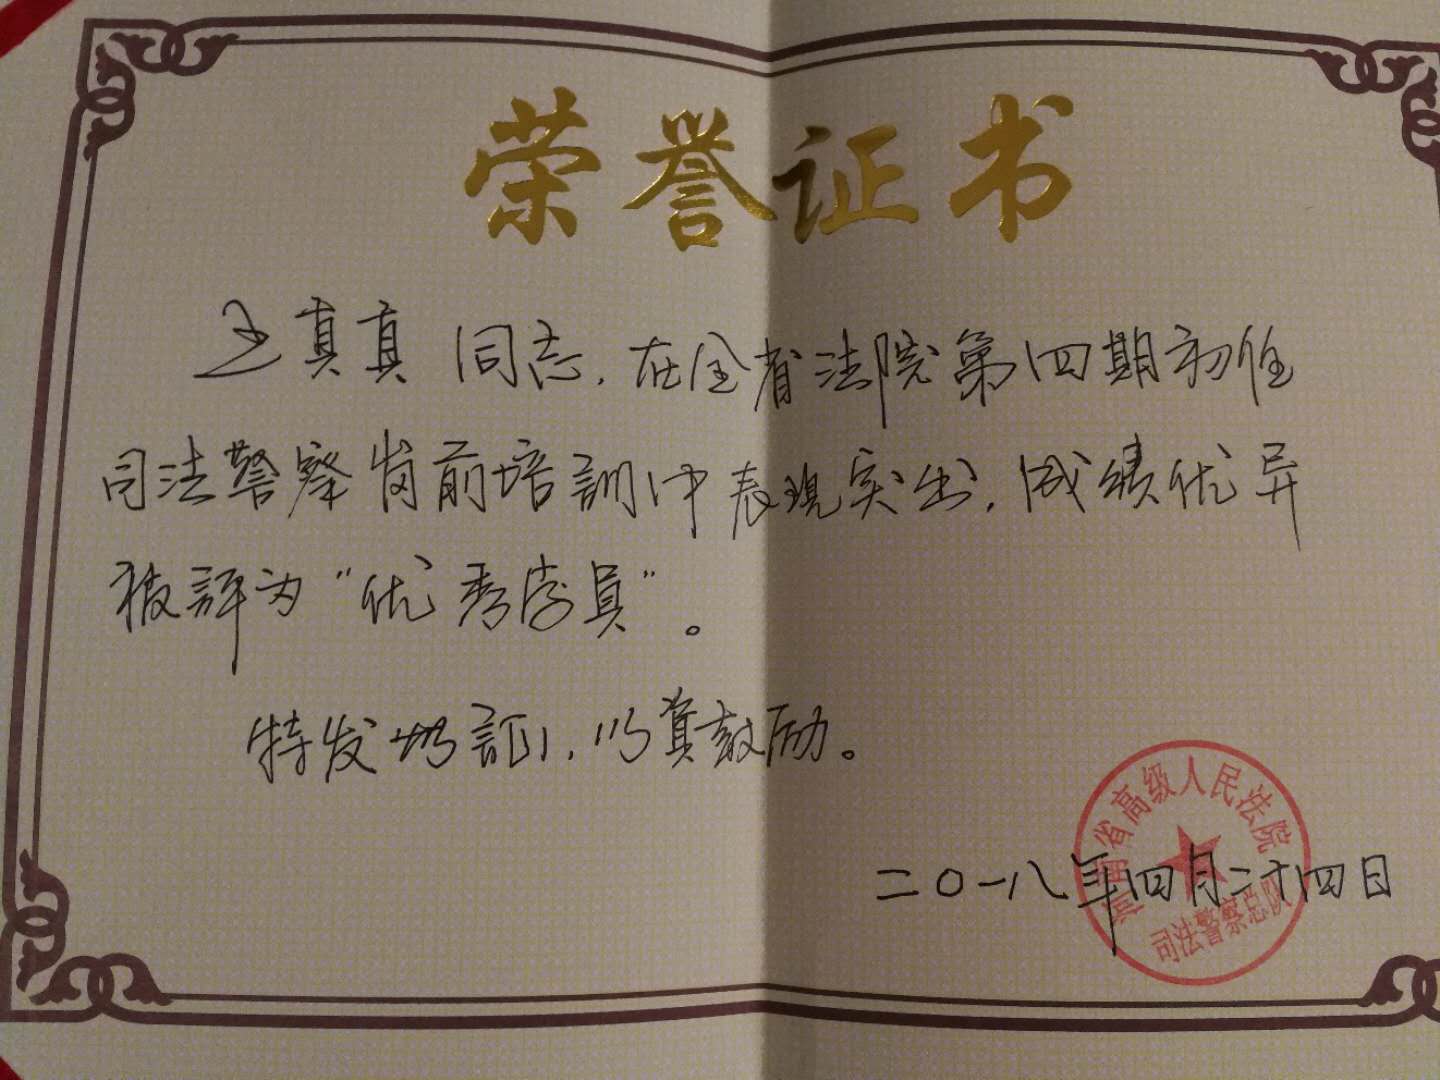 荣誉证书
王真真 同志，在全省法院第四期初任
司法警察岗前培训中表现突出，成绩优异
被评为“优秀学员”。
特发此证，以资鼓励。
河南省高级人民法院
司法警察总队
二〇一八年四月二十四日